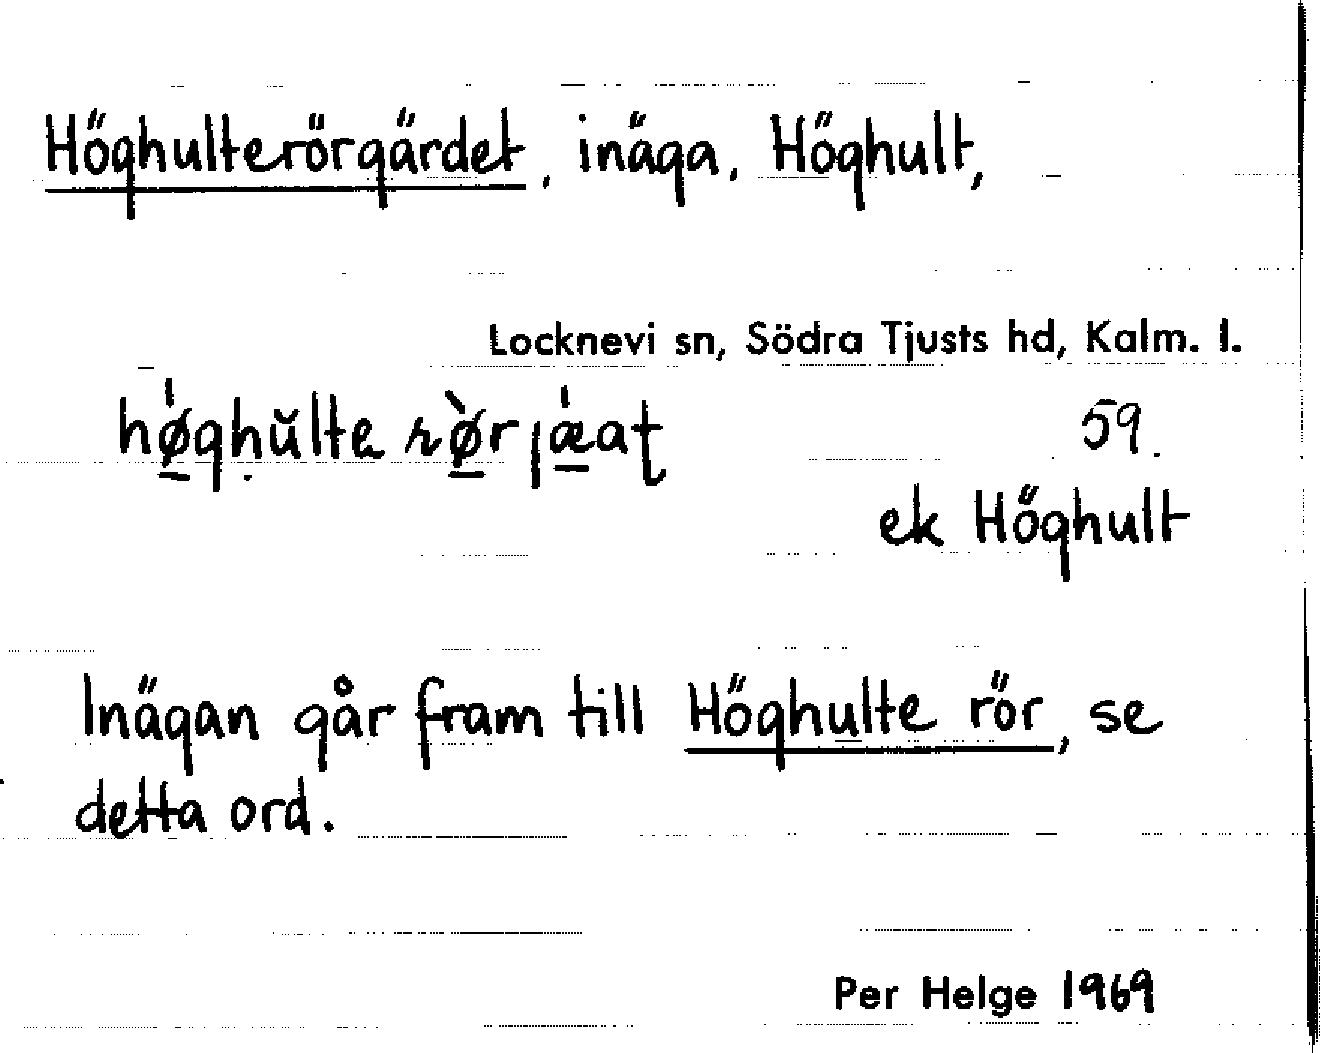 Höghulterörgärdet, inäga, Höghult,
Locknevi sn, Södra Tjusts hd, Kalm. l.
hǿ̲gḥŭlte rø̲̀rjǽ̲at 59.
ek Höghult
Inägan går fram till Höghulte rör, se
detta ord.
Per Helge 1969